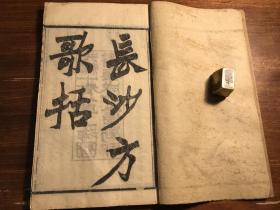 長沙方
歌括